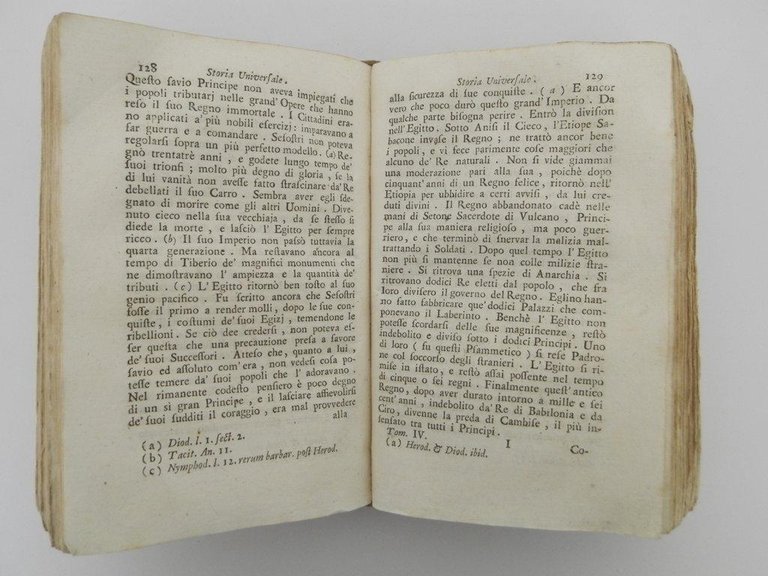 128
Storia Universale.
Questo savio Principe non aveva impiegati che
i popoli tributarj nelle grand' Opere che hanno
reso il suo Regno immortale. I Cittadini era-
no applicati a' più nobili esercizj: imparavano a
far guerra e a comandare. Sesostri non poteva
regolarsi sopra un più perfetto modello. (a) Re-
gnò trentatrè anni, e godete lungo tempo de'
suoi trionfi; molto più degno di gloria, se la
di lui vanità non avesse fatto strascinare da' Re
debellati il suo Carro. Sembra aver egli sde-
gnato di morire come gli altri Uomini. Dive-
nuto cieco nella sua vecchiaja, da se stesso si
diede la morte, e lasciò l' Egitto per sempre
ricco. (b) Il suo Imperio non passò tuttavia la
quarta generazione. Ma restavano ancora al
tempo di Tiberio de' magnifici monumenti che
ne dimostravano l' ampiezza e la quantità de'
tributi. (c) L' Egitto ritornò ben tosto al suo
genio pacifico. Fu scritto ancora che Sesostri
fosse il primo a render molli, dopo le sue con-
quiste, i costumi de' suoi Egizj, temendone le
ribellioni. Se ciò dee credersi, non poteva es-
ser questa che una precauzione presa a favore
de' suoi Successori. Atteso che, quanto a lui,
savio ed assoluto com' era, non vedesi cosa po-
tesse temere da' suoi popoli che l' adoravano.
Nel rimanente codesto pensiero è poco degno
di un sì gran Principe, e il lasciare affievolirsi
de' suoi sudditi il coraggio, era mal provvedere
alla
(a) Diod. l. 1. sect. 2.
(b) Tacit. An. 11.
(c) Nymphod. l. 12. rerum barbar. post Herod.
Storia Universale.
129
alla sicurezza di sue conquiste. (a) E ancor
vero che poco durò questo grand' Imperio. Da
qualche parte bisogna perire. Entrò la division
nell' Egitto. Sotto Anisi il Cieco, l' Etiope Sa-
bacone invase il Regno; ne trattò ancor bene
i popoli, e vi fece parimente cose maggiori che
alcuno de' Re naturali. Non si vide giammai
una moderazion pari alla sua, poichè dopo
cinquant' anni di un Regno felice, ritornò nell'
Etiopia per ubbidire a certi avvisi, da lui cre-
duti divini. Il Regno abbandonato cadè nelle
mani di Setone Sacerdote di Vulcano, Princi-
pe alla sua maniera religioso, ma poco guer-
riero, e che terminò di snervar la malizia mal-
trattando i Soldati. Dopo quel tempo l' Egitto
non più si mantenne se non colle milizie stra-
niere. Si ritrova una spezie di Anarchia. Si
ritrovano dodici Re eletti dal popolo, che fra
loro divisero il governo del Regno. Eglino han-
no fatto fabbricare que' dodici Palazzi che com-
ponevano il Laberinto. Benchè l' Egitto non
potesse scordarsi delle sue magnificenze, restò
indebolito e diviso sotto i dodici Principi. Uno
di loro (fu questi Psammetico) si rese Padro-
ne col soccorso degli stranieri. L' Egitto si ri-
mise in istato, e restò assai possente nel tempo
di cinque o sei regni. Finalmente quest' antico
Regno, dopo aver durato intorno a mille e sei
cent' anni, indebolito da' Re di Babilonia e da
Ciro, divenne la preda di Cambise, il più in-
sensato tra tutti i Principi.
Tom. IV. I Co-
(a) Herod. & Diod. ibid.